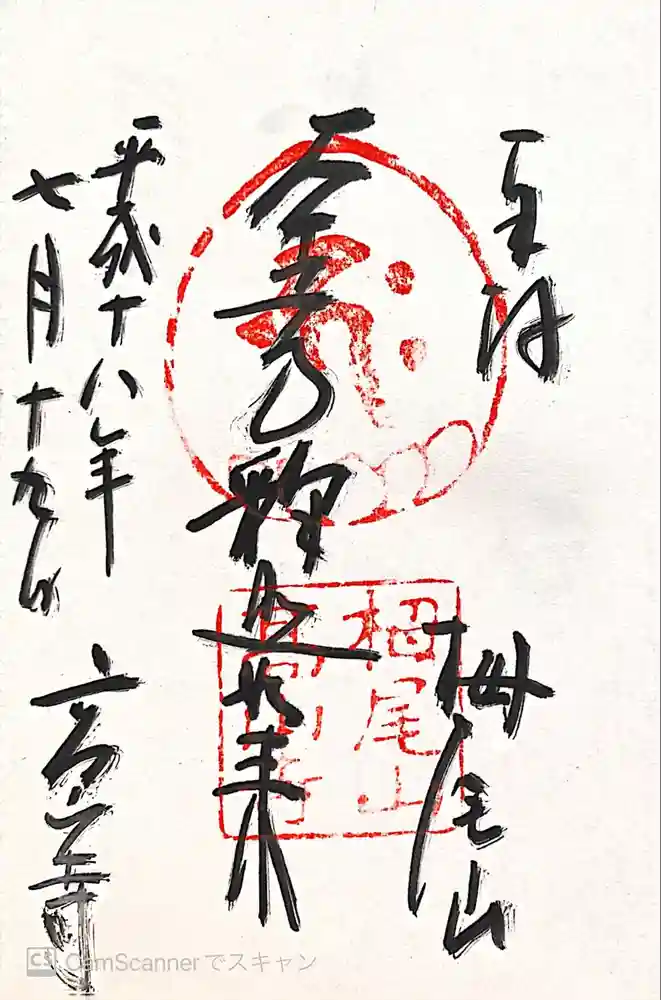 栂尾山
南無釋迦如来
平成十八年
七月十九日
高山寺
栂尾山
高山寺
CS CamScannerでスキャン